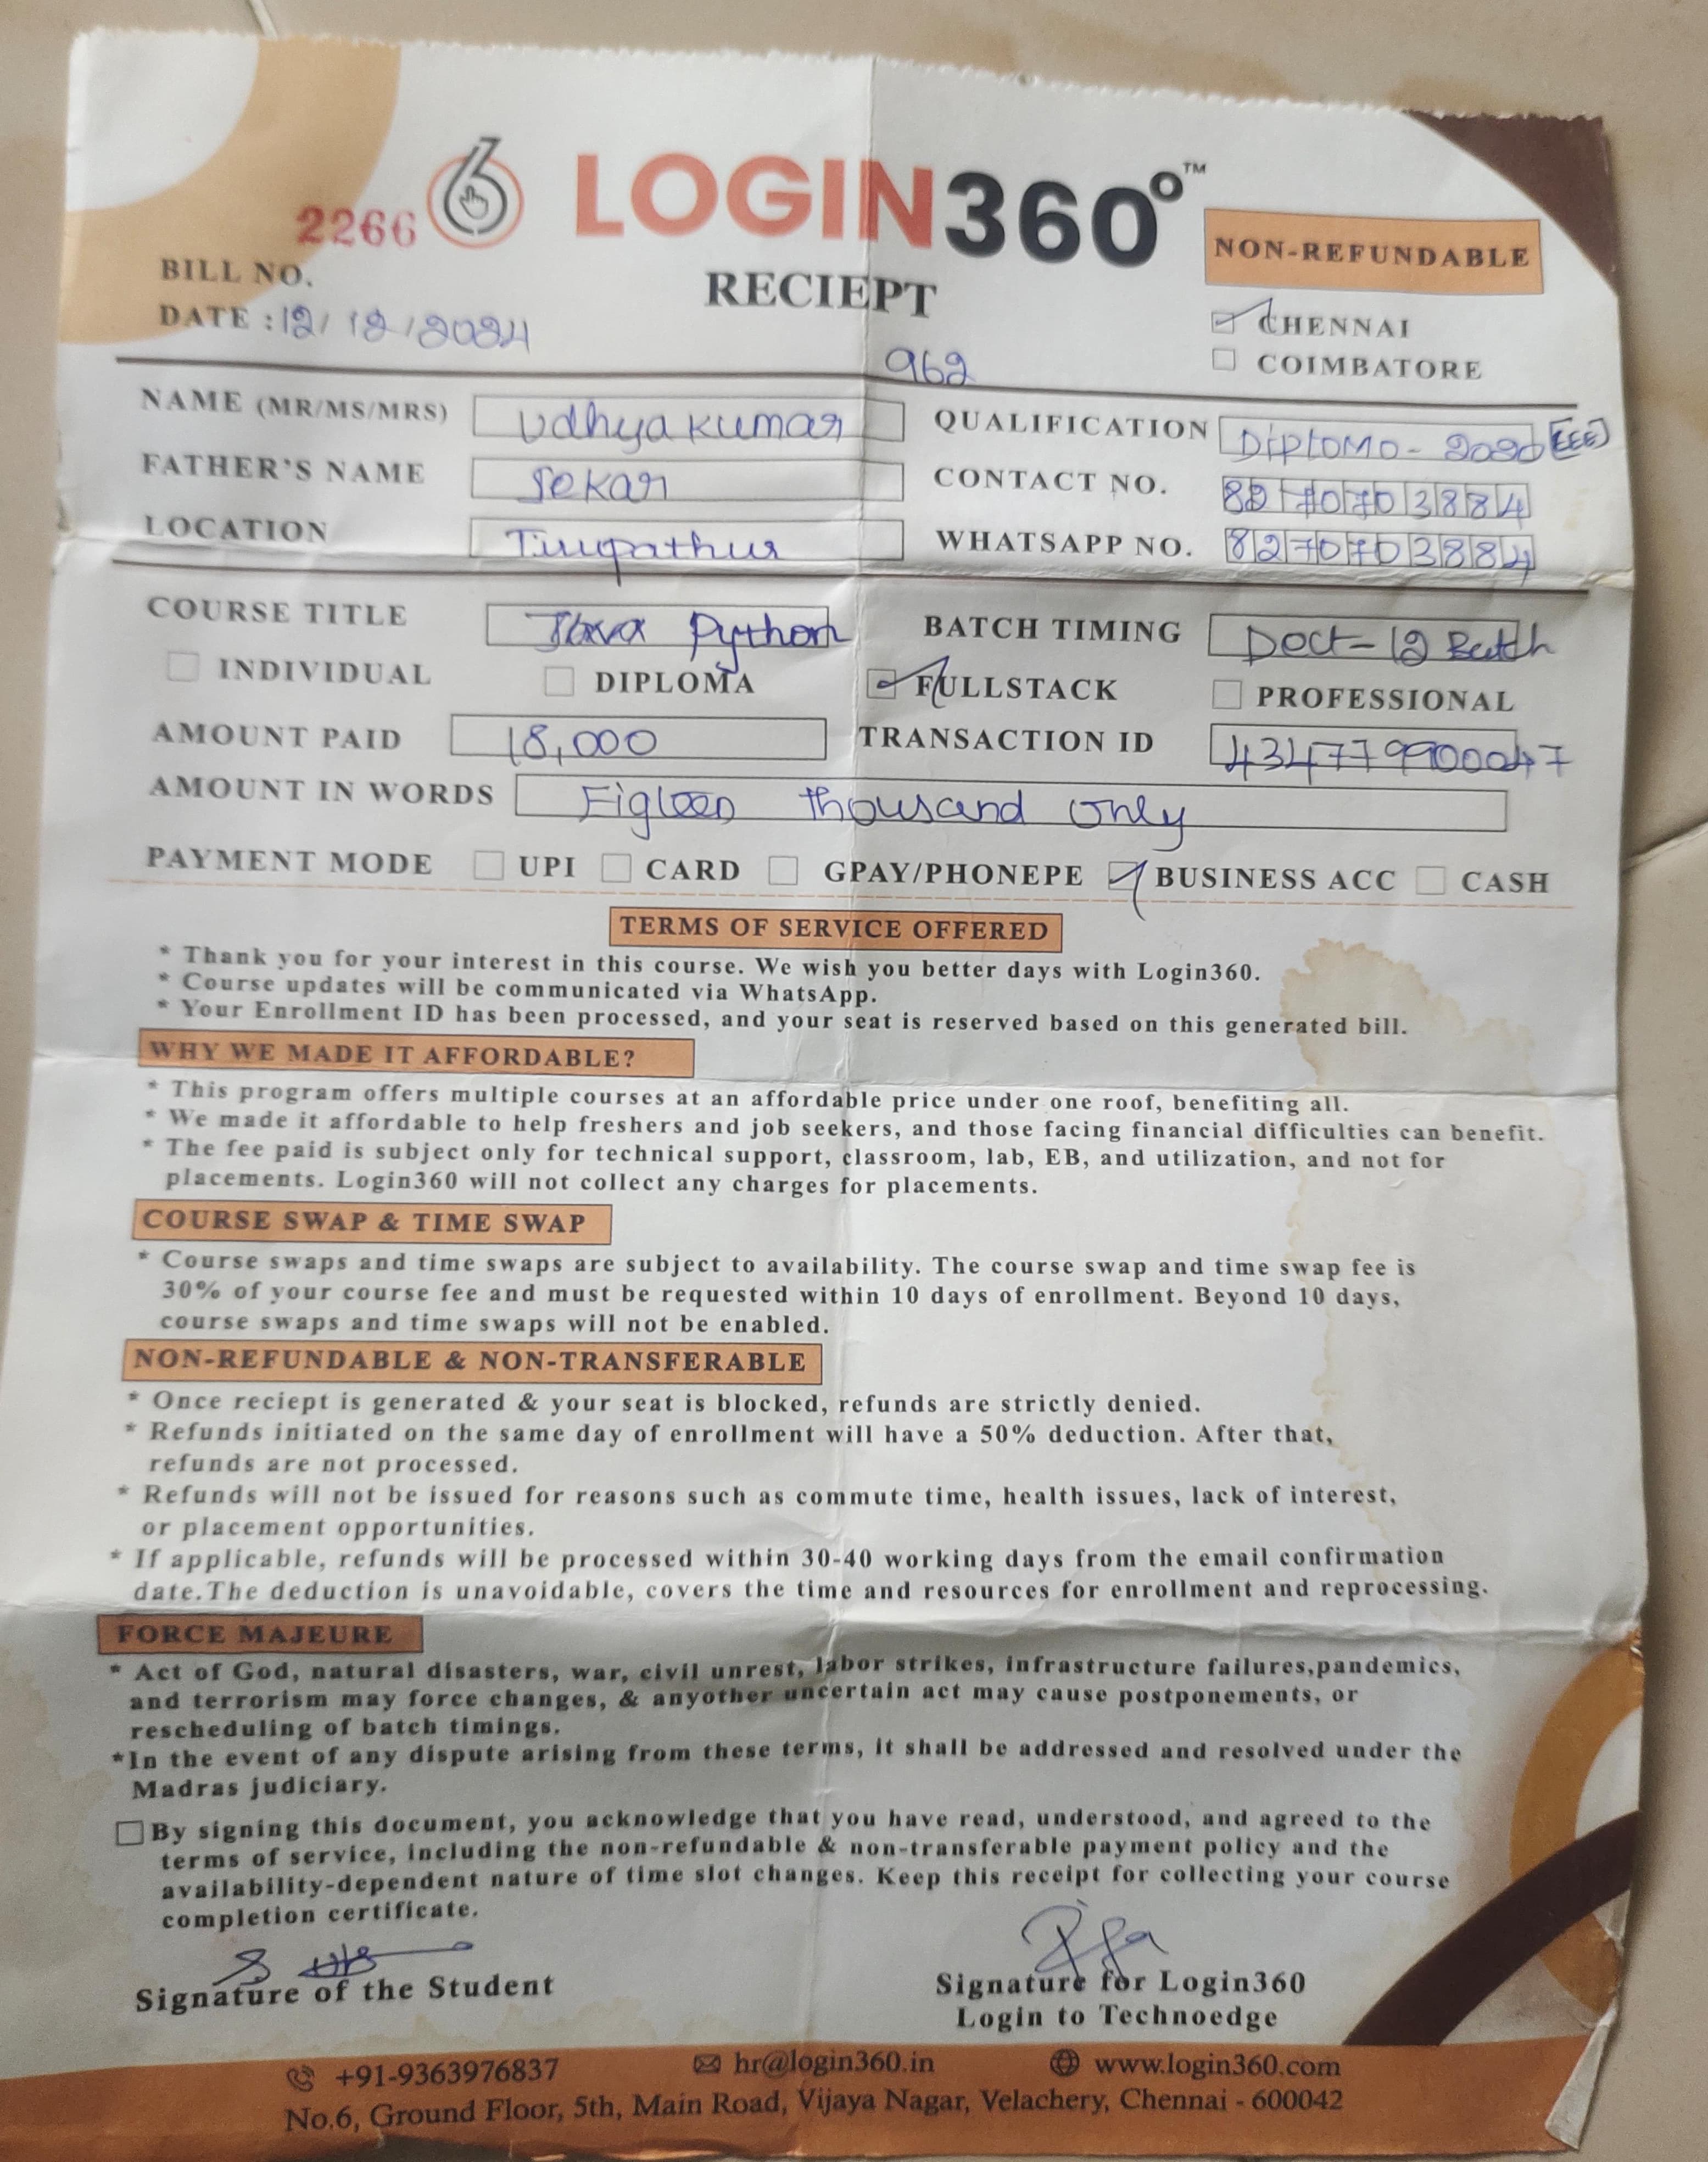 2266 LOGIN360° ™
NON-REFUNDABLE
BILL NO.
RECIEPT
DATE : 12/12/2024
CHENNAI
962
COIMBATORE
NAME (MR/MS/MRS) Udhyakumar QUALIFICATION DIPLOMO - 2020 [EEE]
FATHER'S NAME Sekar CONTACT NO. 8270703884
LOCATION Tirupathur WHATSAPP NO. 8270703884
COURSE TITLE Java Python BATCH TIMING Dect-12 Batch
INDIVIDUAL DIPLOMA FULLSTACK PROFESSIONAL
AMOUNT PAID 18,000 TRANSACTION ID 434779900047
AMOUNT IN WORDS Eigteen thousand only
PAYMENT MODE UPI CARD GPAY/PHONEPE BUSINESS ACC CASH
TERMS OF SERVICE OFFERED
* Thank you for your interest in this course. We wish you better days with Login360.
* Course updates will be communicated via WhatsApp.
* Your Enrollment ID has been processed, and your seat is reserved based on this generated bill.
WHY WE MADE IT AFFORDABLE?
* This program offers multiple courses at an affordable price under one roof, benefiting all.
* We made it affordable to help freshers and job seekers, and those facing financial difficulties can benefit.
* The fee paid is subject only for technical support, classroom, lab, EB, and utilization, and not for
placements. Login360 will not collect any charges for placements.
COURSE SWAP & TIME SWAP
* Course swaps and time swaps are subject to availability. The course swap and time swap fee is
30% of your course fee and must be requested within 10 days of enrollment. Beyond 10 days,
course swaps and time swaps will not be enabled.
NON-REFUNDABLE & NON-TRANSFERABLE
* Once reciept is generated & your seat is blocked, refunds are strictly denied.
* Refunds initiated on the same day of enrollment will have a 50% deduction. After that,
refunds are not processed.
* Refunds will not be issued for reasons such as commute time, health issues, lack of interest,
or placement opportunities.
* If applicable, refunds will be processed within 30-40 working days from the email confirmation
date.The deduction is unavoidable, covers the time and resources for enrollment and reprocessing.
FORCE MAJEURE
* Act of God, natural disasters, war, civil unrest, labor strikes, infrastructure failures,pandemics,
and terrorism may force changes, & anyother uncertain act may cause postponements, or
rescheduling of batch timings.
*In the event of any dispute arising from these terms, it shall be addressed and resolved under the
Madras judiciary.
By signing this document, you acknowledge that you have read, understood, and agreed to the
terms of service, including the non-refundable & non-transferable payment policy and the
availability-dependent nature of time slot changes. Keep this receipt for collecting your course
completion certificate.
Signature of the Student
Signature for Login360
Login to Technoedge
+91-9363976837 hr@login360.in www.login360.com
No.6, Ground Floor, 5th, Main Road, Vijaya Nagar, Velachery, Chennai - 600042